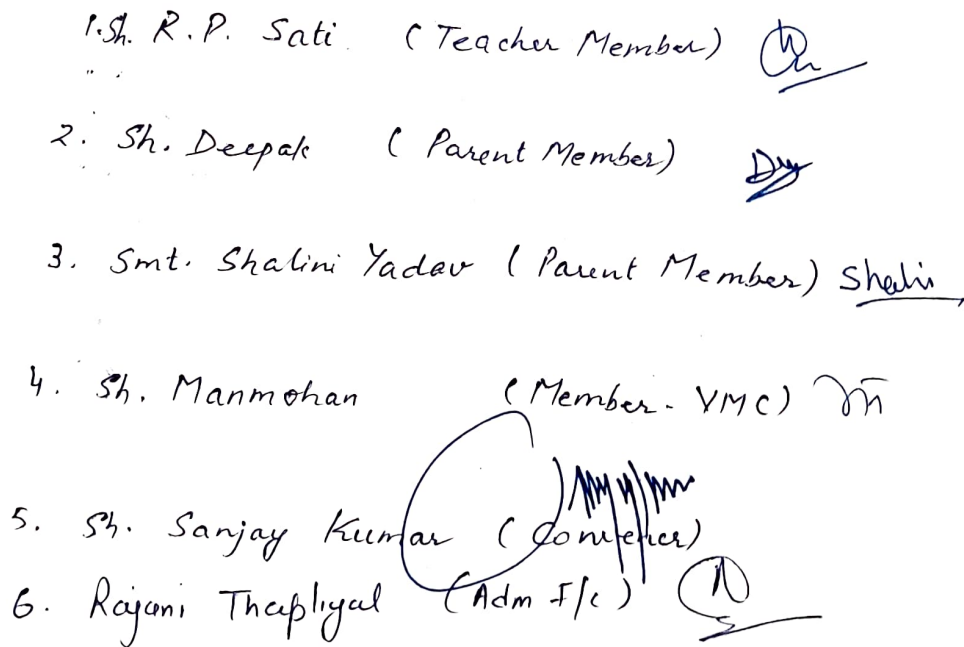 1. Sh. R.P. Sati (Teacher Member)
2. Sh. Deepak (Parent Member)
3. Smt. Shalini Yadav (Parent Member) Shalini
4. Sh. Manmohan (Member - VMC)
5. Sh. Sanjay Kumar (Convener)
6. Rajani Thapliyal (Adm I/c)